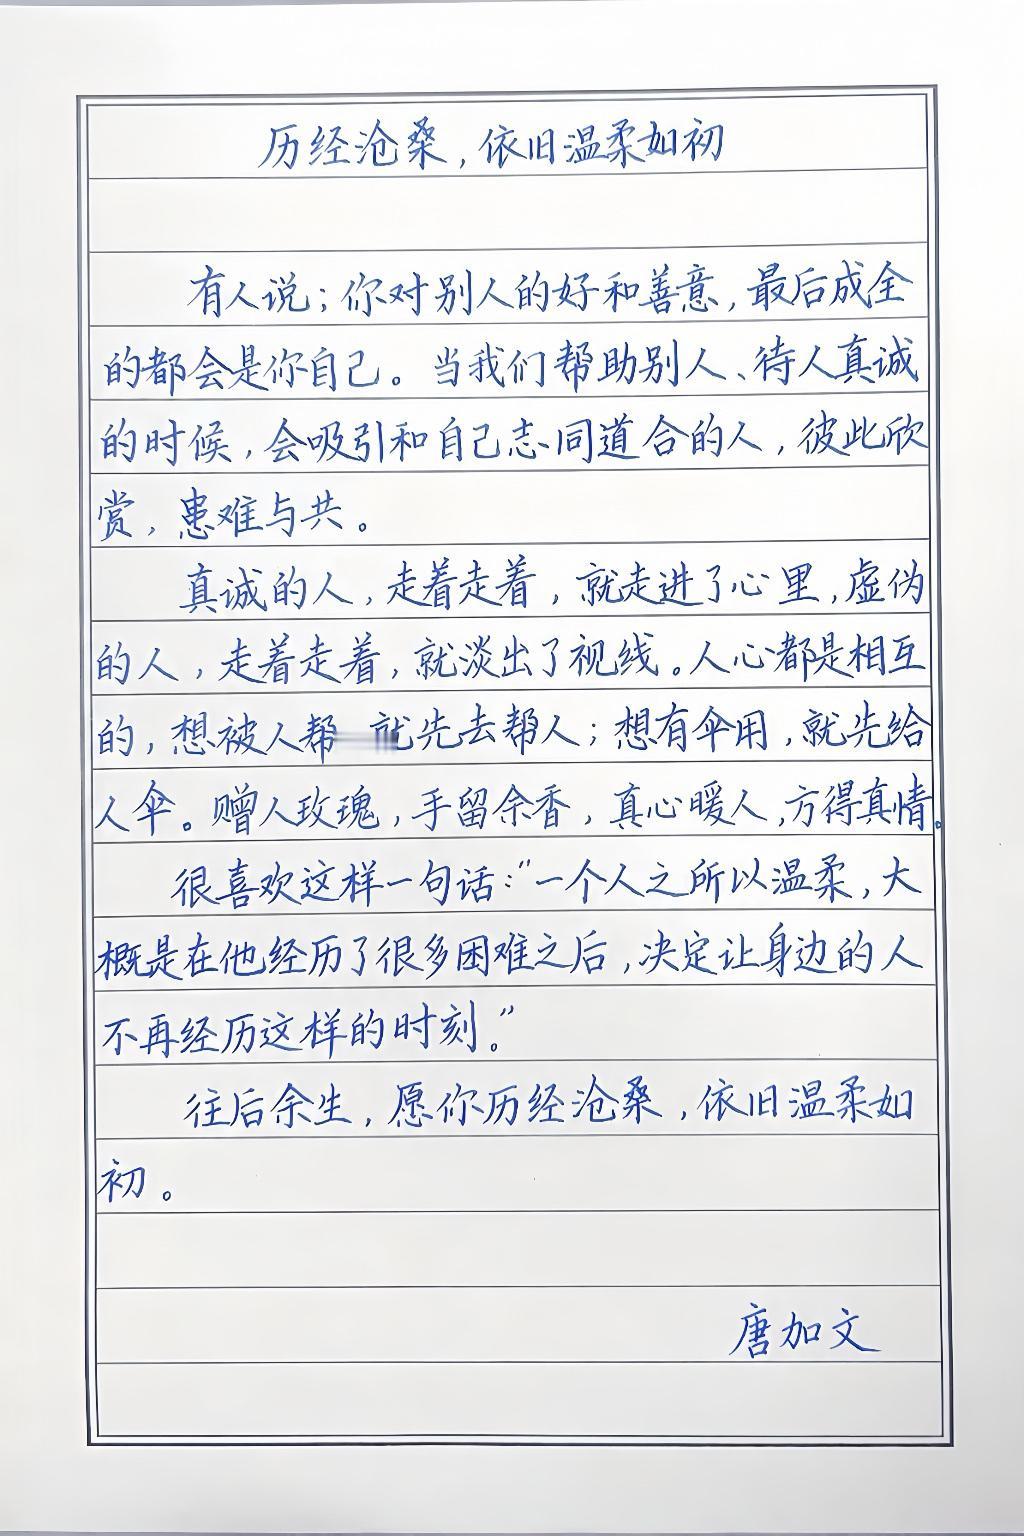 历经沧桑，依旧温柔如初
有人说；你对别人的好和善意，最后成全
的都会是你自己。当我们帮助别人、待人真诚
的时候，会吸引和自己志同道合的人，彼此欣
赏，患难与共。
真诚的人，走着走着，就走进了心里，虚伪
的人，走着走着，就淡出了视线。人心都是相互
的，想被人帮 就先去帮人；想有伞用，就先给
人伞。赠人玫瑰，手留余香，真心暖人，方得真情。
很喜欢这样一句话：“一个人之所以温柔，大
概是在他经历了很多困难之后，决定让身边的人
不再经历这样的时刻。”
往后余生，愿你历经沧桑，依旧温柔如
初。
唐加文